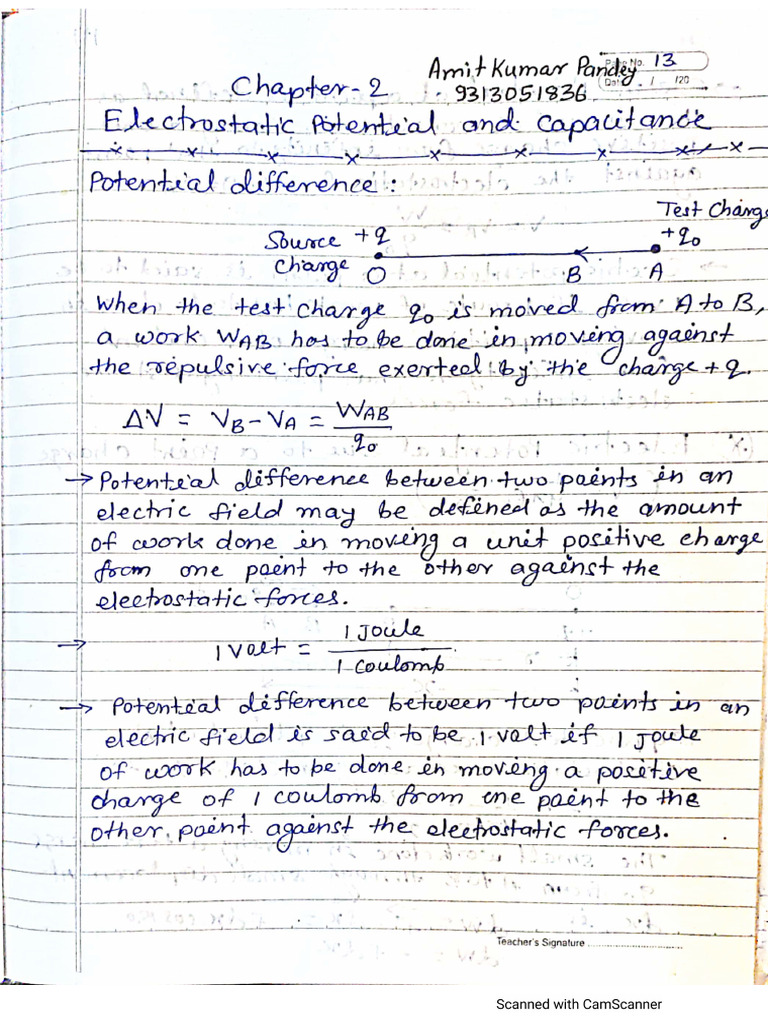 Amit Kumar Pandey
Page No. 13
Date / /20
Chapter-2
9313051836
Electrostatic Potential and Capacitance
Potential difference:
Test Charge
Source +q +q₀
Charge O B A
When the test charge q₀ is moved from A to B,
a work W_AB has to be done in moving against
the repulsive force exerted by the charge +q.
ΔV = V_B - V_A = W_AB / q₀
→ Potential difference between two points in an
electric field may be defined as the amount
of work done in moving a unit positive charge
from one point to the other against the
electrostatic forces.
→ 1 Volt = 1 Joule / 1 Coulomb
→ Potential difference between two points in an
electric field is said to be 1 volt if 1 Joule
of work has to be done in moving a positive
charge of 1 coulomb from one point to the
other point against the electrostatic forces.
Teacher's Signature
Scanned with CamScanner